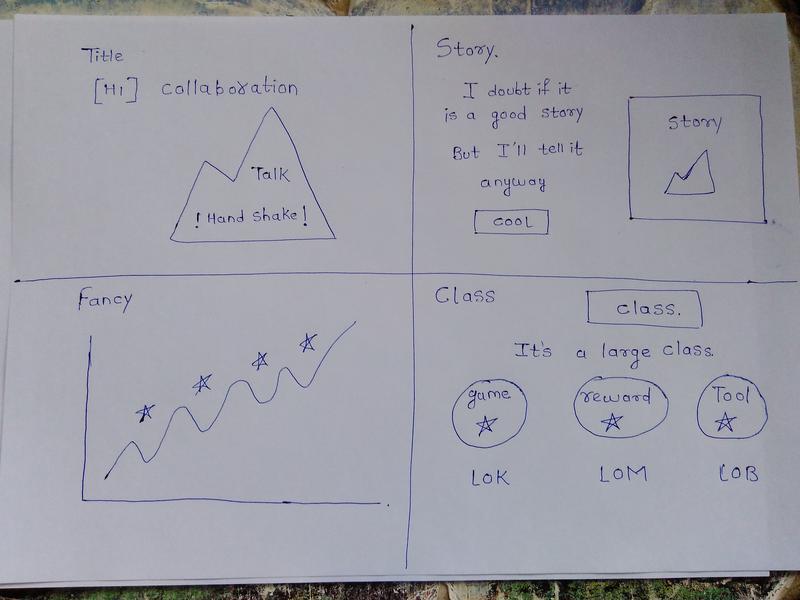 Title
[HI] collaboration
Talk
! Hand Shake !
Story.
I doubt if it
is a good story
But I'll tell it
anyway
COOL
Story
Fancy
Class
class.
It's a large class.
game reward Tool
LOK LOM LOB